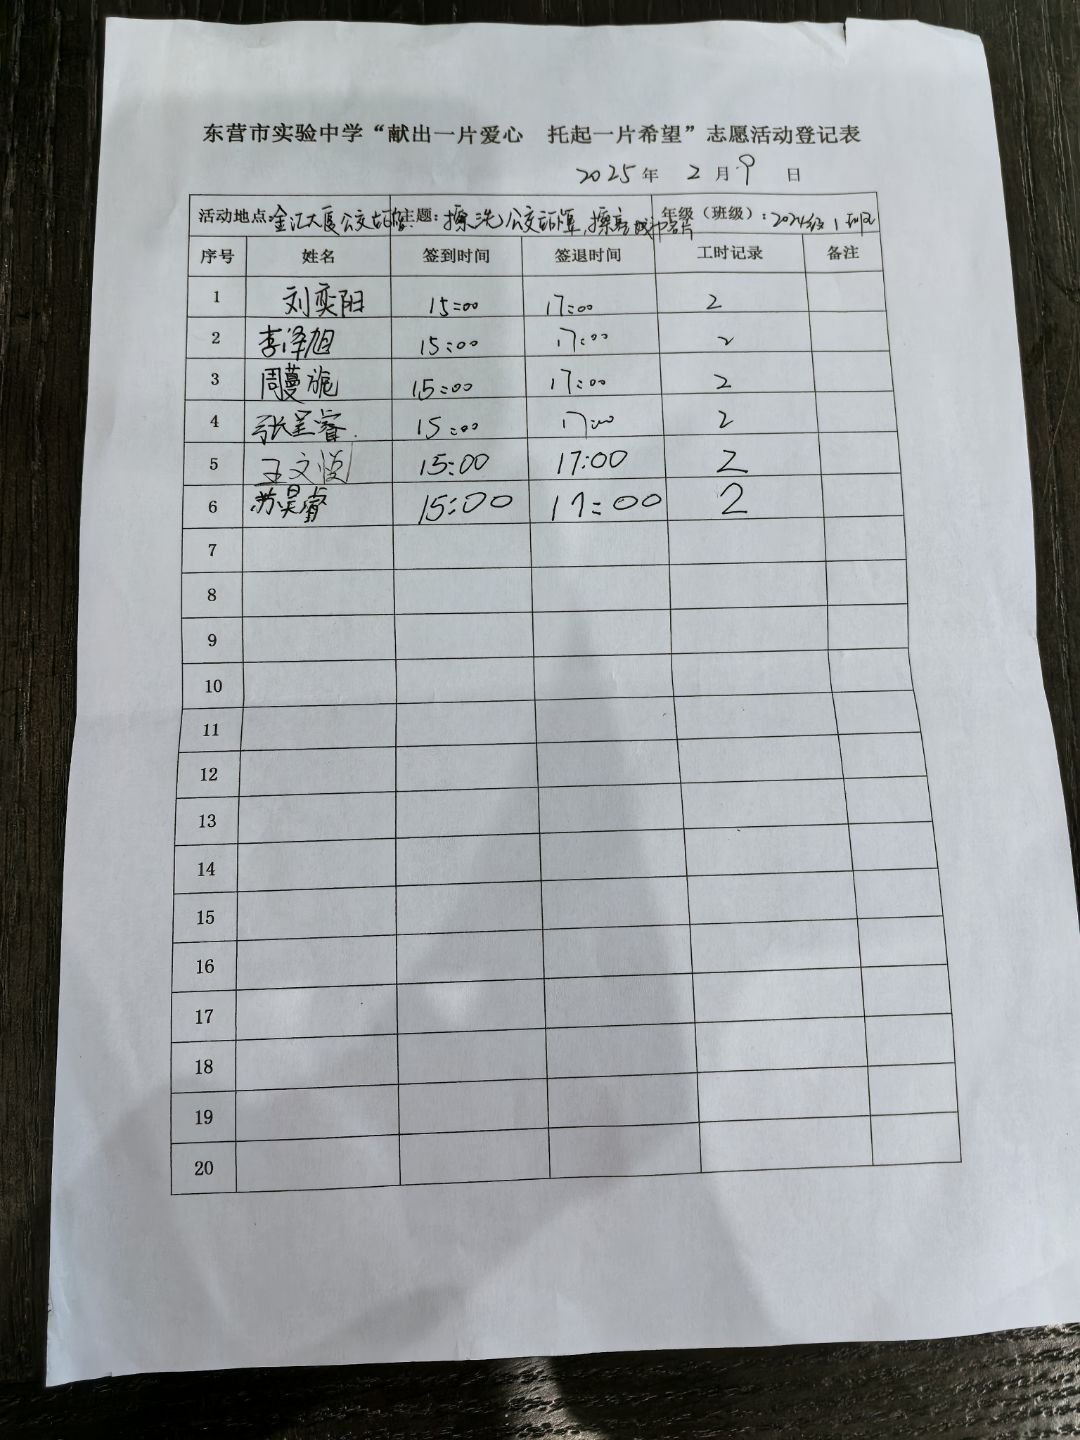 东营市实验中学“献出一片爱心 托起一片希望”志愿活动登记表
2025年 2月 9日
活动地点:金汇大厦公交站 主题:擦洗公交站牌,擦亮城市名片 年级(班级):2024级1班
序号 姓名 签到时间 签退时间 工时记录 备注
1 刘奕阳 15:00 17:00 2
2 李泽旭 15:00 17:00 2
3 周蔓旎 15:00 17:00 2
4 张呈睿 15:00 17:00 2
5 王文 15:00 17:00 2
6 苏昊睿 15:00 17:00 2
7
8
9
10
11
12
13
14
15
16
17
18
19
20